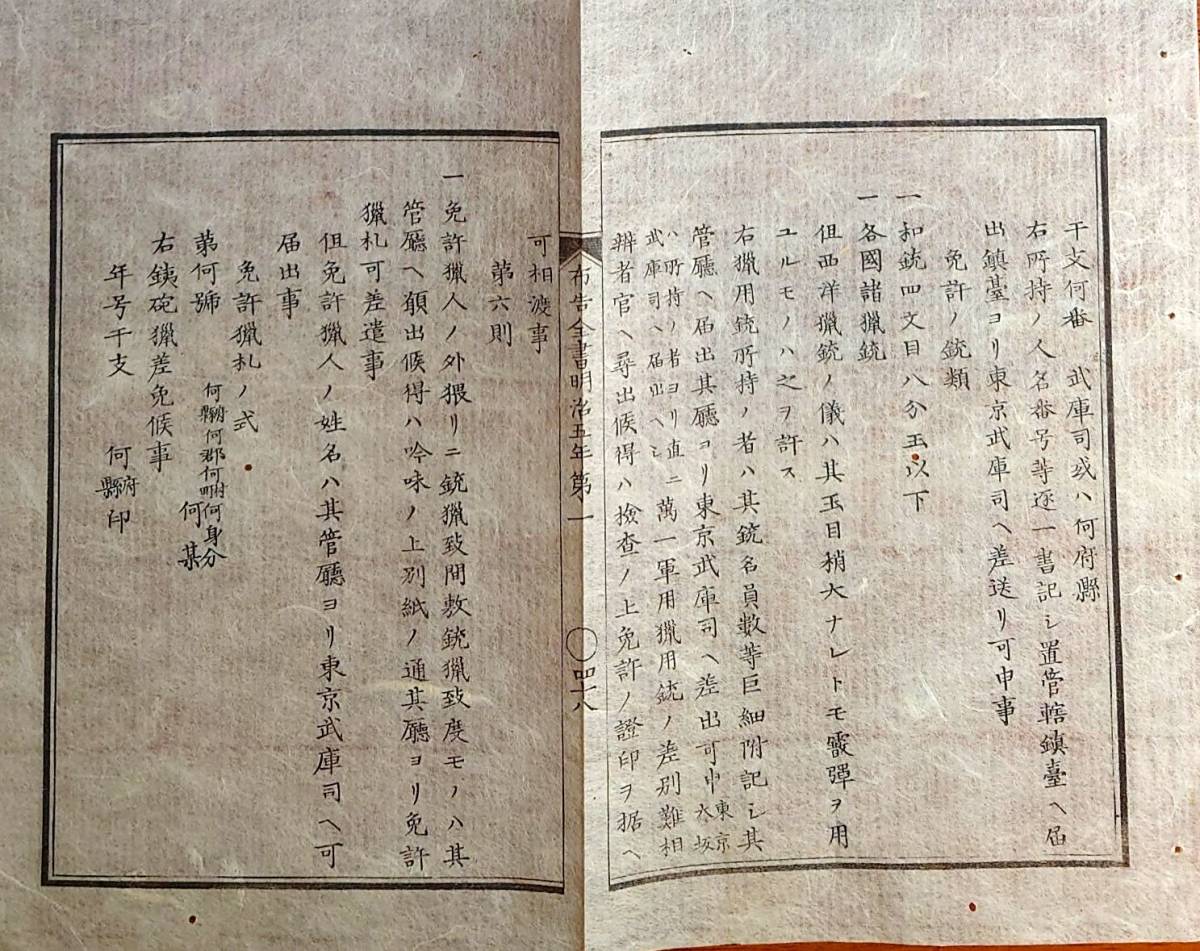 干支何番　武庫司或ハ何府縣
右所持ノ人名番号等逐一書記シ置管轄鎮臺ヘ届
出鎮臺ヨリ東京武庫司ヘ差送リ可申事
免許ノ銃類
一和銃四文目八分玉以下
一各國諸獵銃
但西洋獵銃ノ儀ハ其玉目梢大ナレトモ霰彈ヲ用
ユルモノハ之ヲ許ス
右獵用銃所持ノ者ハ其銃名員數等巨細附記シ其
管廳ヘ届出其廳ヨリ東京武庫司ヘ差出可申東京大坂
ハ所持ノ者ヨリ直ニ武庫司ヘ届出ヘシ萬一軍用獵用銃ノ差別難相
辨者官ヘ尋出候得ハ撿査ノ上免許ノ證印ヲ据ヘ
布告全書明治五年第一
〇四十八
可相渡事
第六則
一免許獵人ノ外猥リニ銃獵致間敷銃獵致度モノハ其
管廳ヘ願出候得ハ吟味ノ上別紙ノ通其廳ヨリ免許
獵札可差遣事
但免許獵人ノ姓名ハ其管廳ヨリ東京武庫司ヘ可
届出事
免許獵札ノ式
第何號
何府縣何郡何村町何身分
何某
右銕砲獵差免候事
年号干支　何府縣印